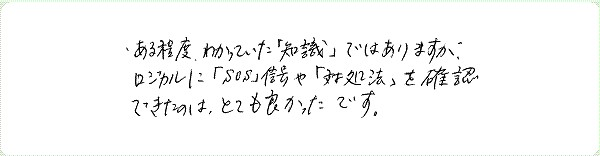 ・ある程度、わかっていた「知識」ではありますが、
ロジカルに「SOS」信号や「対処法」を確認
できたのは、とても良かったです。